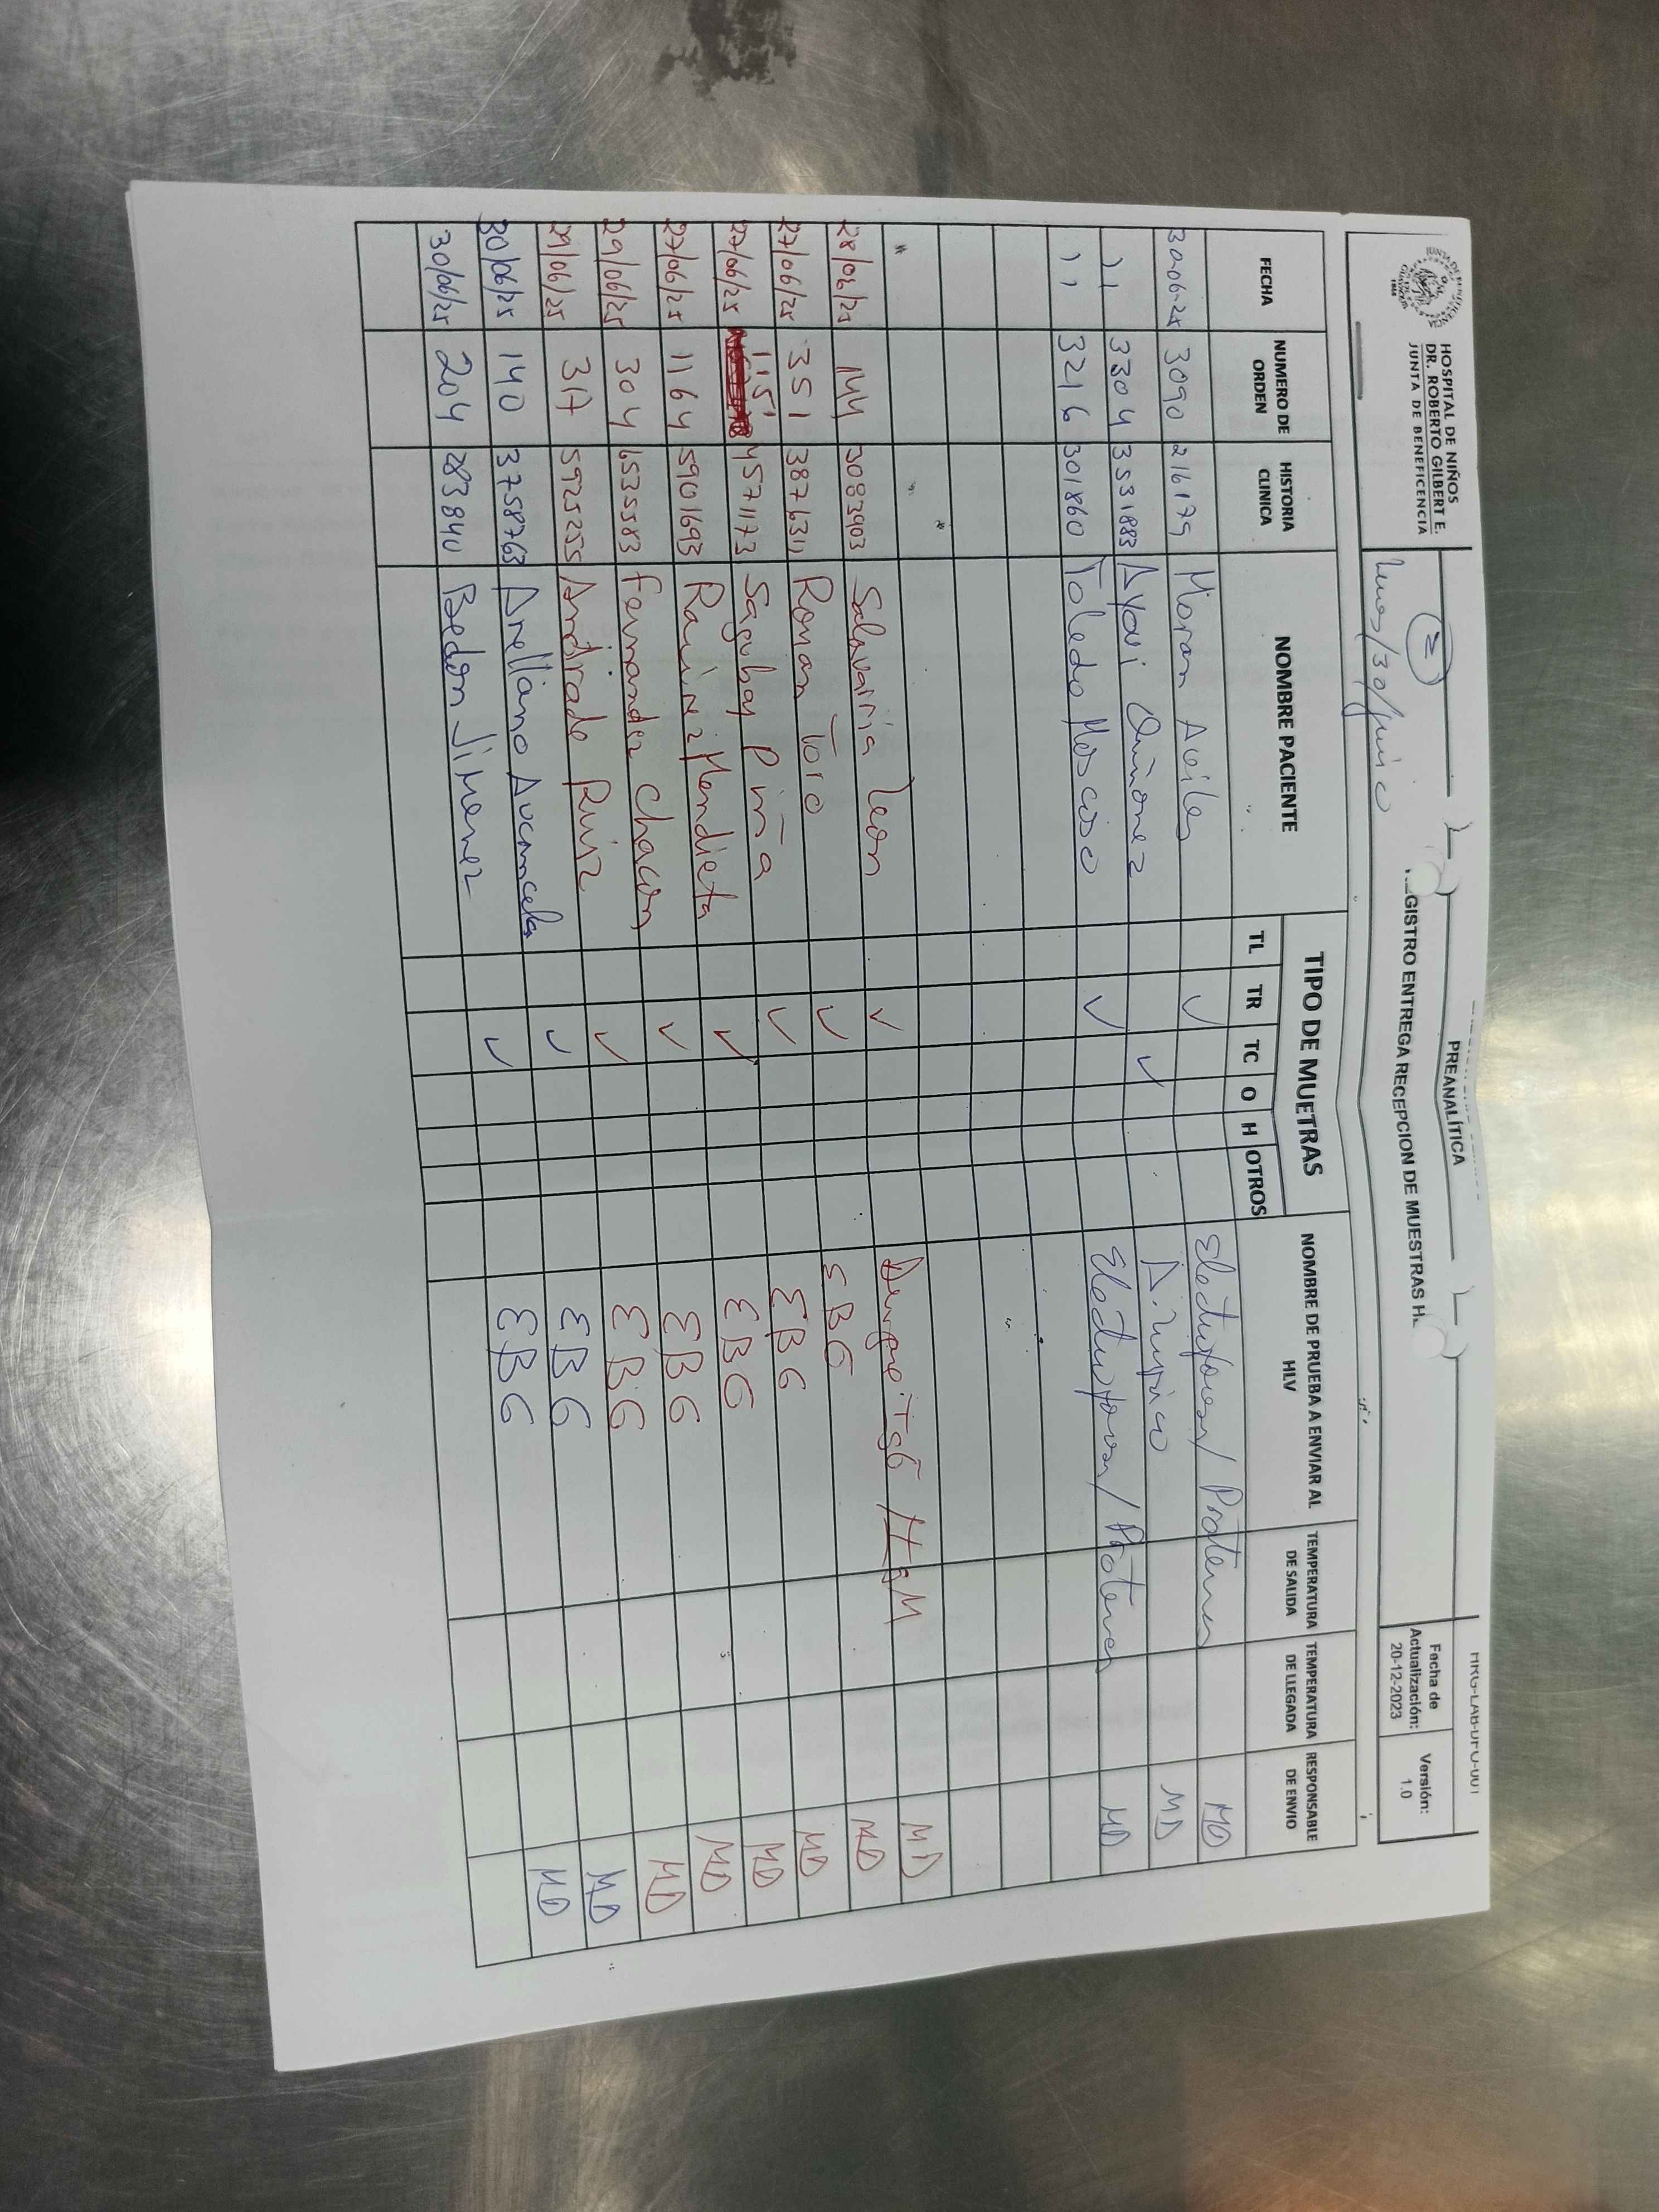 HOSPITAL DE NIÑOS
DR. ROBERTO GILBERT E.
JUNTA DE BENEFICENCIA
PREANALÍTICA
GISTRO ENTREGA RECEPCION DE MUESTRAS H
Fecha de Actualización: 20-12-2023
Versión: 1.0
2
Lunes/30/Junio
FECHA NUMERO DE ORDEN HISTORIA CLINICA NOMBRE PACIENTE TIPO DE MUETRAS NOMBRE DE PRUEBA A ENVIAR AL HLV TEMPERATURA DE SALIDA TEMPERATURA DE LLEGADA RESPONSABLE DE ENVIO
TL TR TC O H OTROS
30-06-25 3090 216179 Moran Aviles ✓ MD
11 3304 3531883 Ayovi Quiñonez ✓ MD
11 3216 301860 Toledo Moscoso ✓ MD
28/06/25 144 3083903 Leon ✓ Dengue IgG MD
27/06/25 351 Roman Toro ✓ EBG MD
27/06/25 1151 4571173 Sagubay Piña ✓ EBG MD
27/06/25 1164 5901693 Ramirez Mendieta ✓ EBG MD
29/06/25 304 6535583 Fernandez Chacon ✓ EBG MD
29/06/25 317 5925255 Andrade Ruiz ✓ EBG MD
30/06/25 140 3758763 Arellano Aucancela ✓ EBG MD
30/06/25 204 283840 Bedon Jimenez ✓ EBG MD